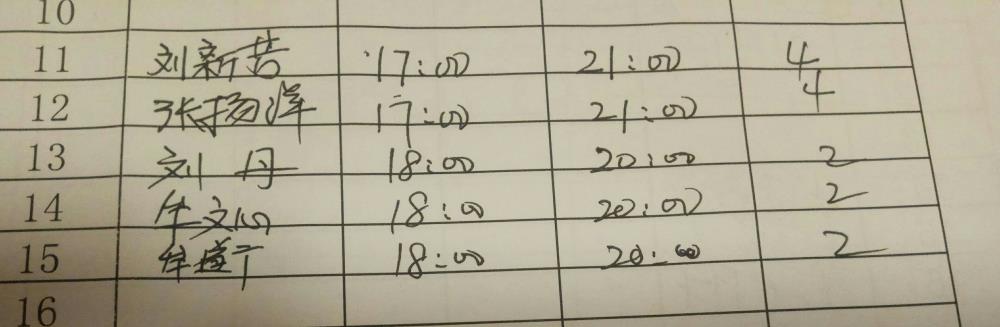 10
11 刘新苦 17:00 21:00 4
12 张扬洋 17:00 21:00 4
13 刘丹 18:00 20:00 2
14 牛文心 18:00 20:00 2
15 18:00 20:00 2
16